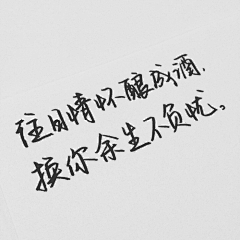 往日情怀酿成酒.
换你余生不负忧。